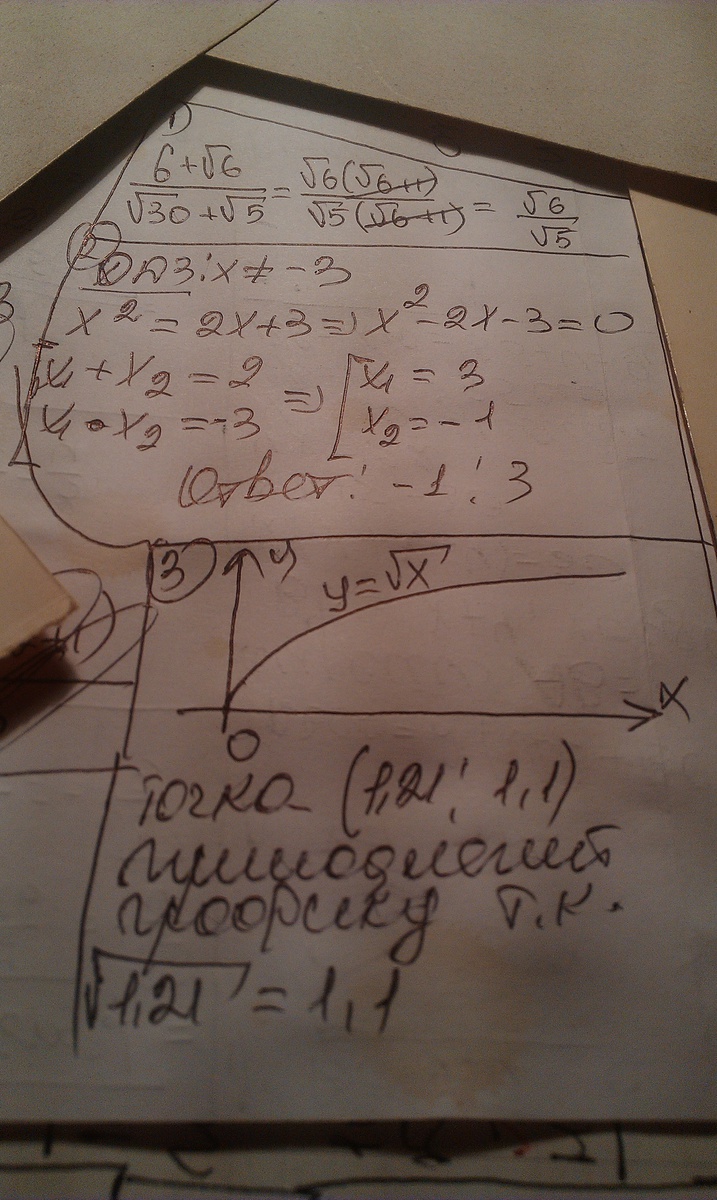 1)
6+√6 / √30+√5 = √6(√6+1) / √5(√6+1) = √6 / √5
2) ОДЗ: x ≠ -3
x² = 2x+3 => x²-2x-3=0
x₁ + x₂ = 2 => x₁ = 3
x₁ • x₂ = -3 x₂ = -1
Ответ: -1; 3
3) y
y=√x
x
0
Точка (1,21; 1,1)
принадлежит
графику т.к.
√1,21 = 1,1